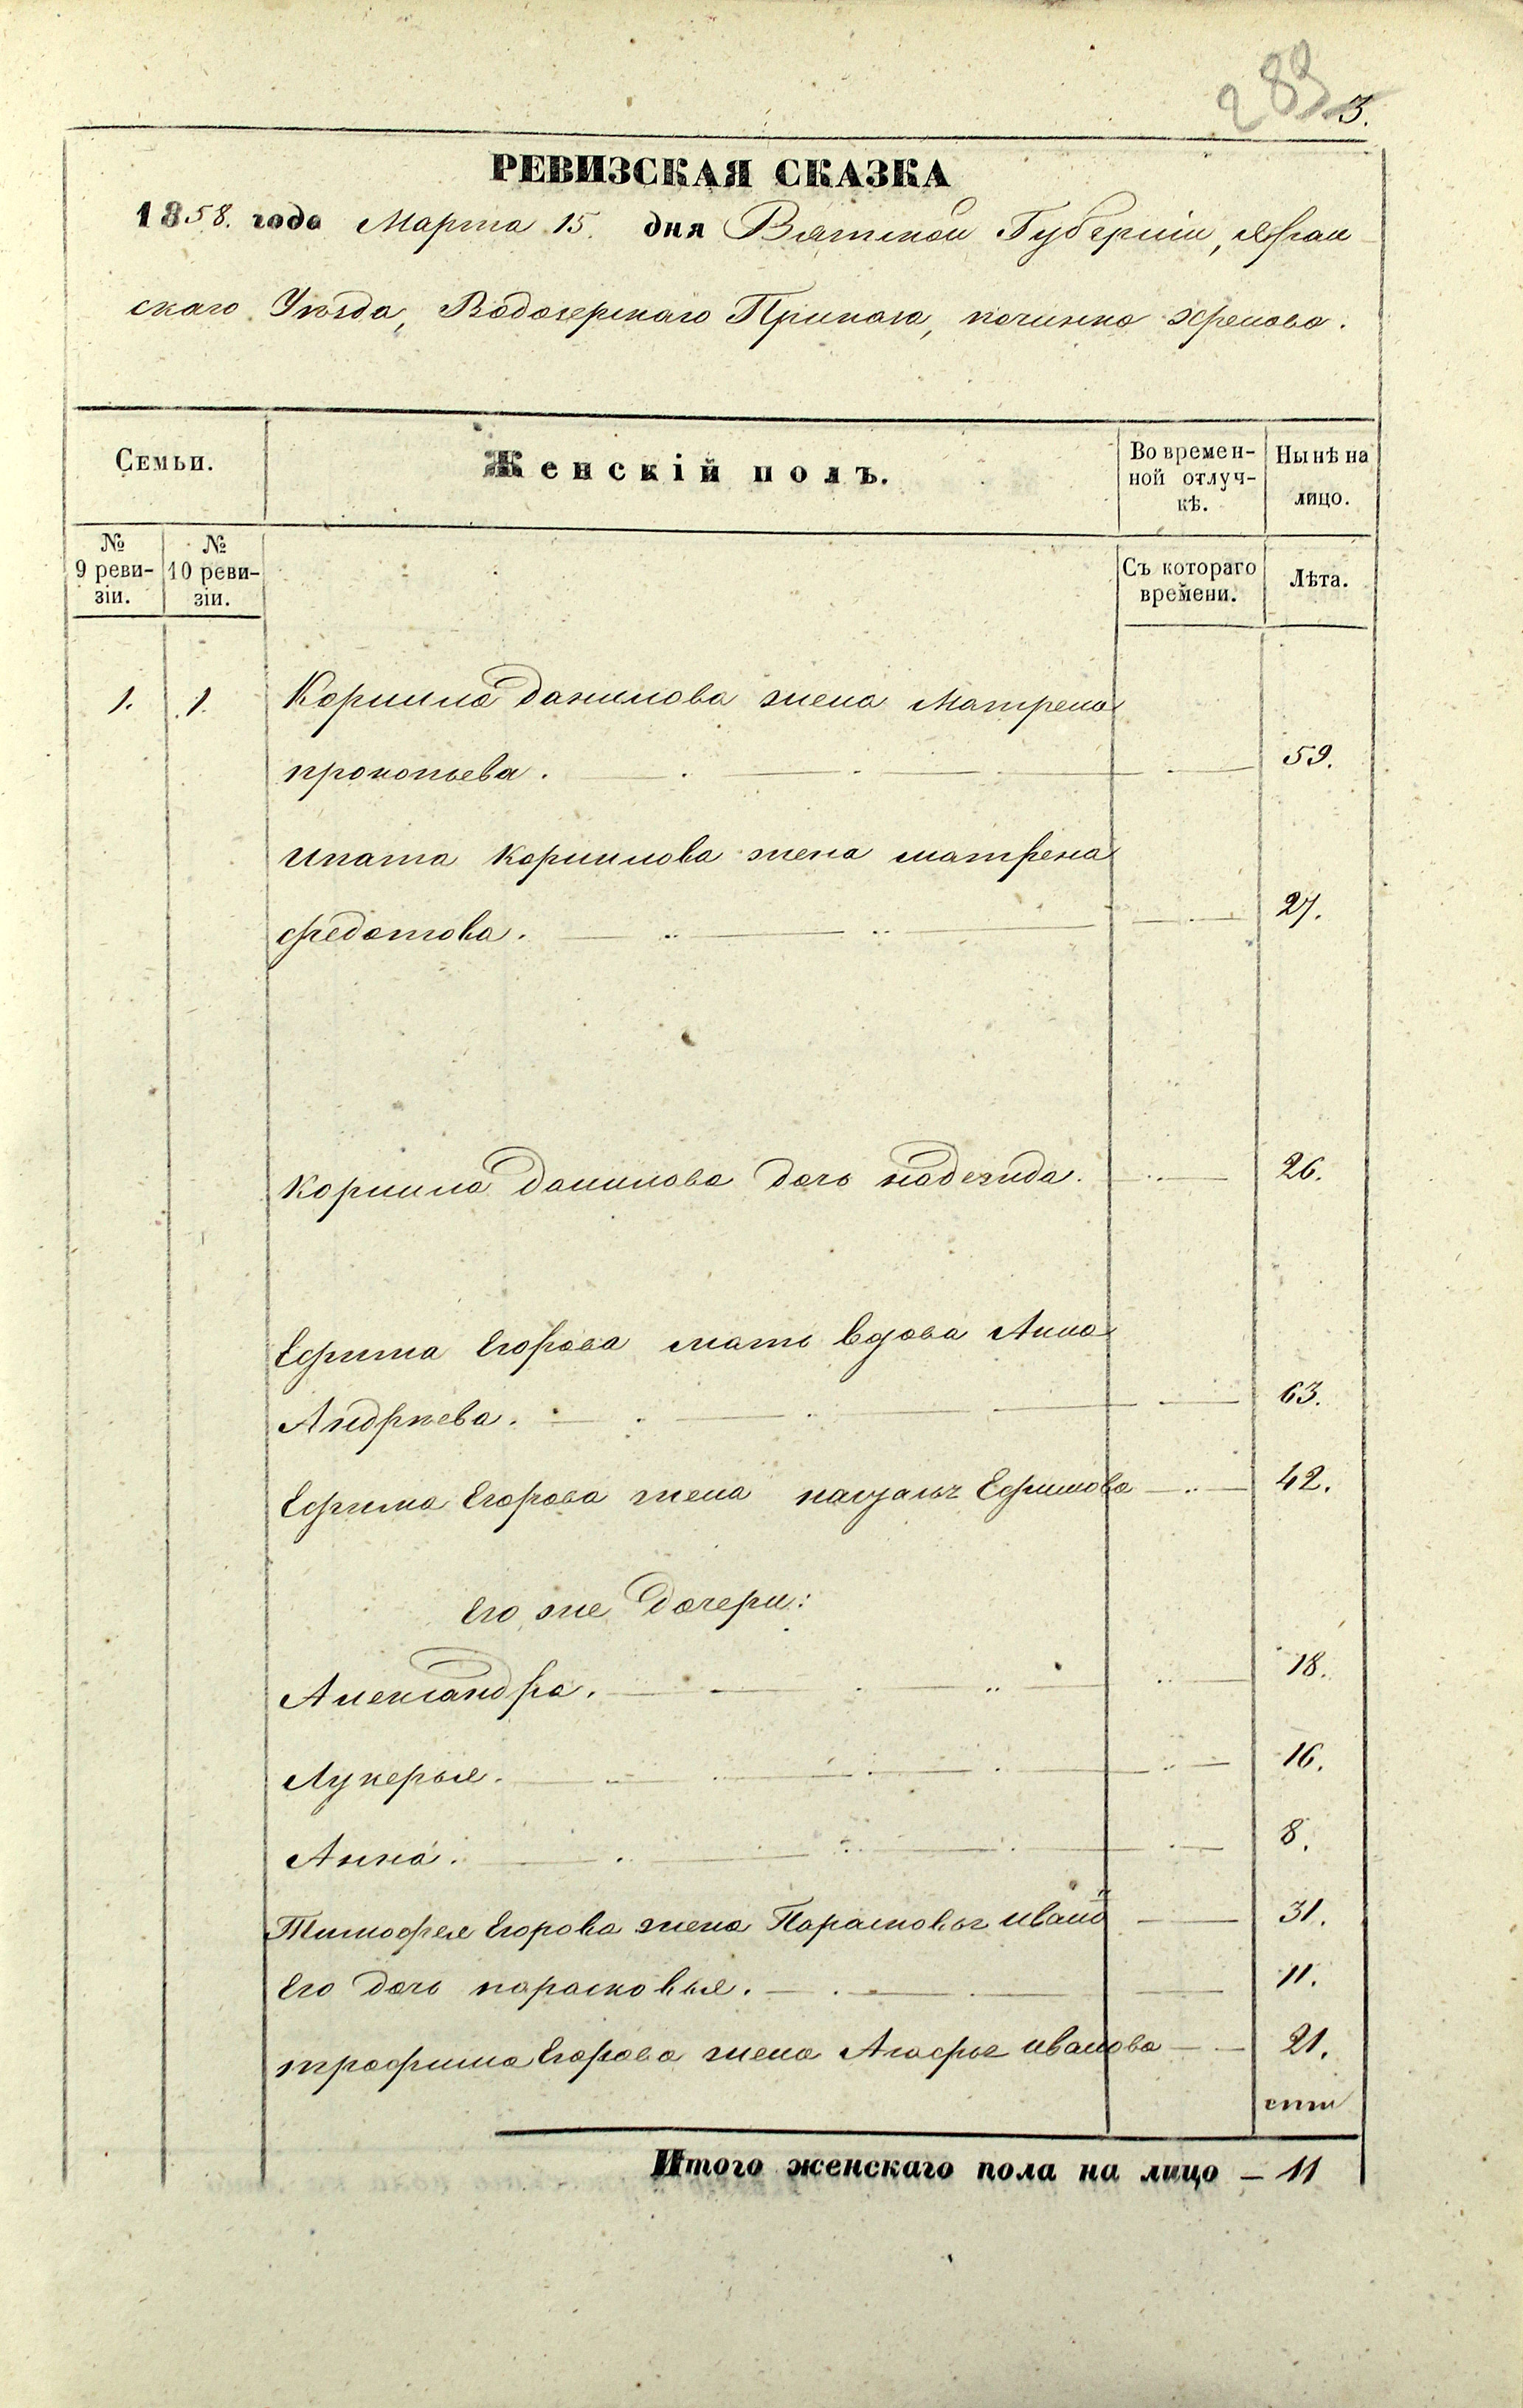 289
3.
РЕВИЗСКАЯ СКАЗКА
1858. года Марта 15. дня Вятской Губерніи, Яран
скаго Уѣзда, Водозерскаго Приказа, починка Хренова.
Семьи.
Женскій полъ.
Во времен-
ной отлуч-
кѣ.
Нынѣ на
лицо.
№
9 реви-
зіи.
№
10 реви-
зіи.
Съ котораго
времени.
Лѣта.
1. 1. Корнила Данилова жена Матрена
прокопьева. 59.
Ипата Корнилова жена матрена
федотова. 27.
Корнила Данилова дочь надежда. 26.
Ефима Егорова мать вдова Анна
Андрѣева. 63.
Ефима Егорова жена Ефимова 42.
Его же Дочери:
Александра. 18.
Лукерья. 16.
Анна. 8.
Тимофея Егорова жена Парасковья ивано 31.
Его дочь парасковья. 11.
трофима Егорова жена Агафья иванова 21.
Итого женскаго пола на лицо – 11